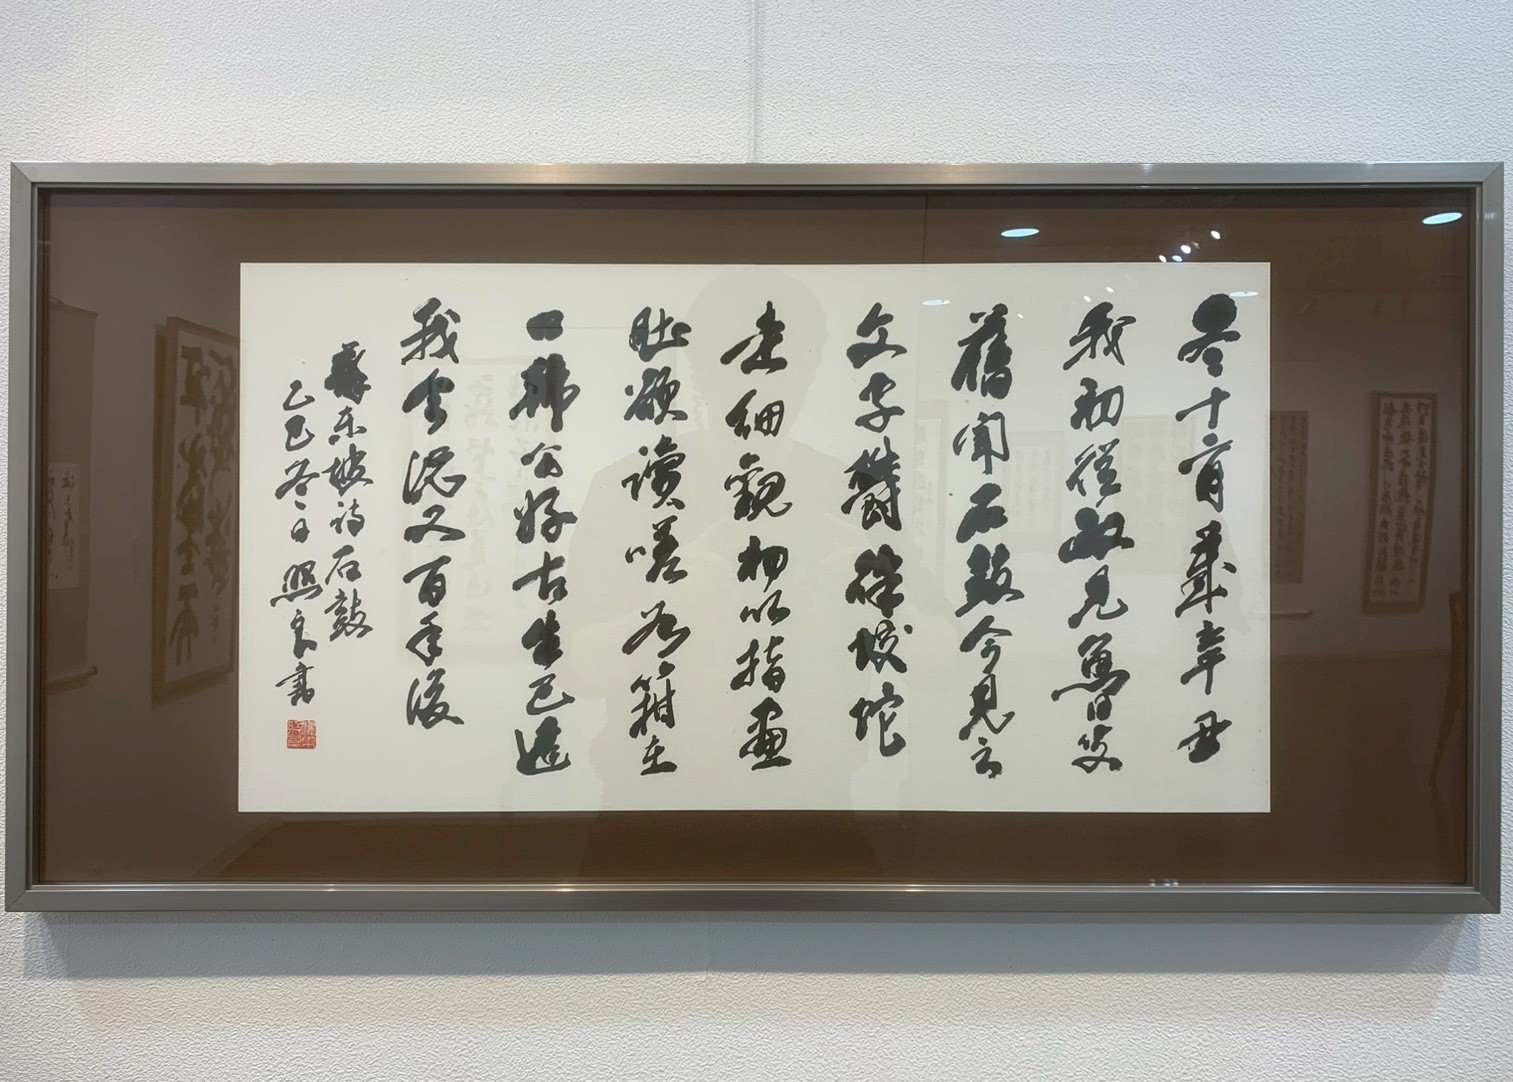 冬十二月歲辛丑
我初從政見魯叟
舊聞石鼓今見之
文字鬱律蛟蛇
走細觀初以指畫
肚欲讀嗟如箝在
口韓公好古生已遲
我今況又百年後
蘇東坡詩石鼓
乙巳冬日照良書